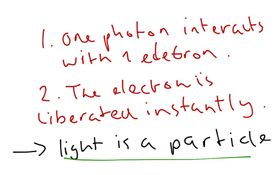 1. One photon interacts
with 1 electron.
2. The electron is
liberated instantly.
→ light is a particle